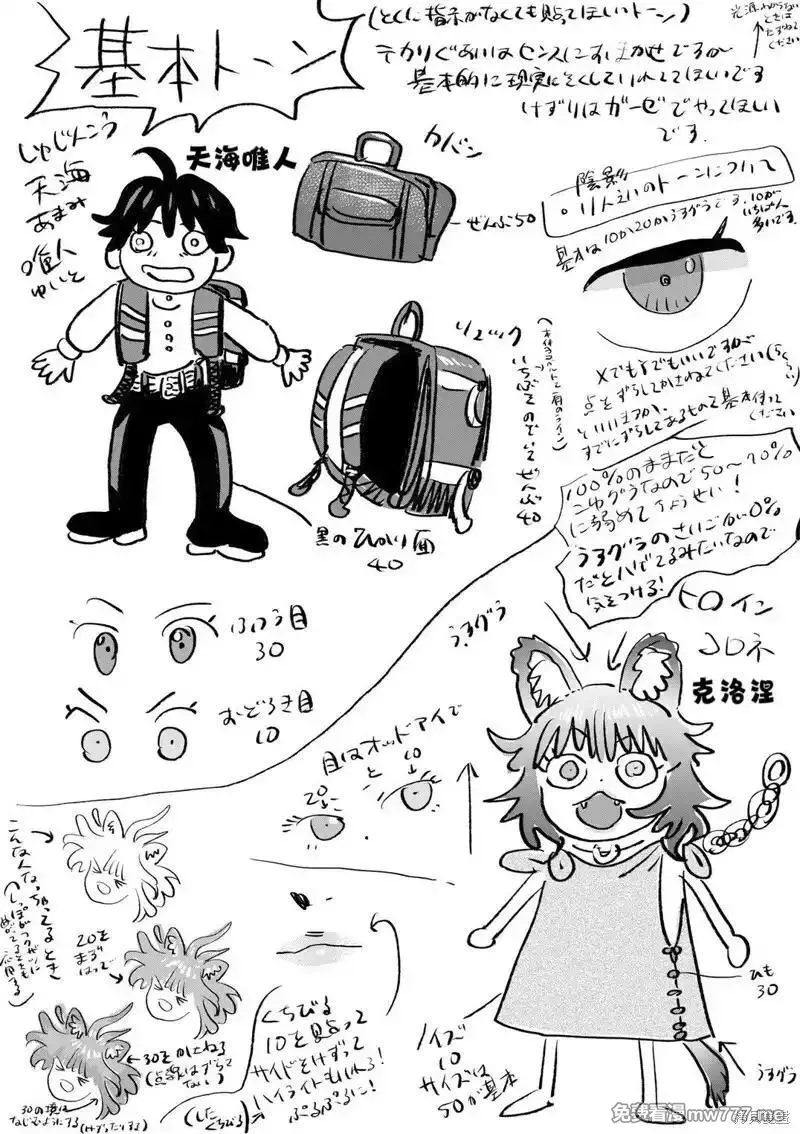 基本トーン
(とくに指示がなくても貼ってほしいトーン)
光源わからない
ときは
たずねて
ください
テカりぐあいはセンスにおまかせですが
基本的に現実にそくしていれてほしいです
けずりはガーゼでやってほしい
です.
しゅじんこう
天海
あまみ
唯人
ゆいと
天海唯人
カバン
ぜんぶ50
陰影
・りんえいのトーンについて
基本は10か20かうすグラです.10が
いちばん
多いです.
リュック
いちぶをのぞいて
ぜんぶ
40
黒のひかり面
40
XでもYでもいいですが
点をずらしてかさねてください
といいますか、
すでにずらしてあるもので基本作って
ください
100%のままだと
こゆすぎるなので50〜70%
に弱めてちょうせい!
うすグラのさいごが0%
だとハゲてるみたいなので
気をつける!
ふつう目
30
おどろき目
10
うすグラ
ヒロイン
コロネ
克洛涅
目はオッドアイで
20
と
10
こんな人なっちゃってるとき
20を
まず
はって
←30をかさねる
(点々はずらして
ない)
30の境は
なじむようにする(けずったりする)
くちびる
10を貼って
サイドをけずって
ハイライトもいれろ!
ぷるぷるに!
(した
くちびる)
ひも
30
ノイズ
10
サイズは
50が基本
うすグラ
免费看漫mw777.me